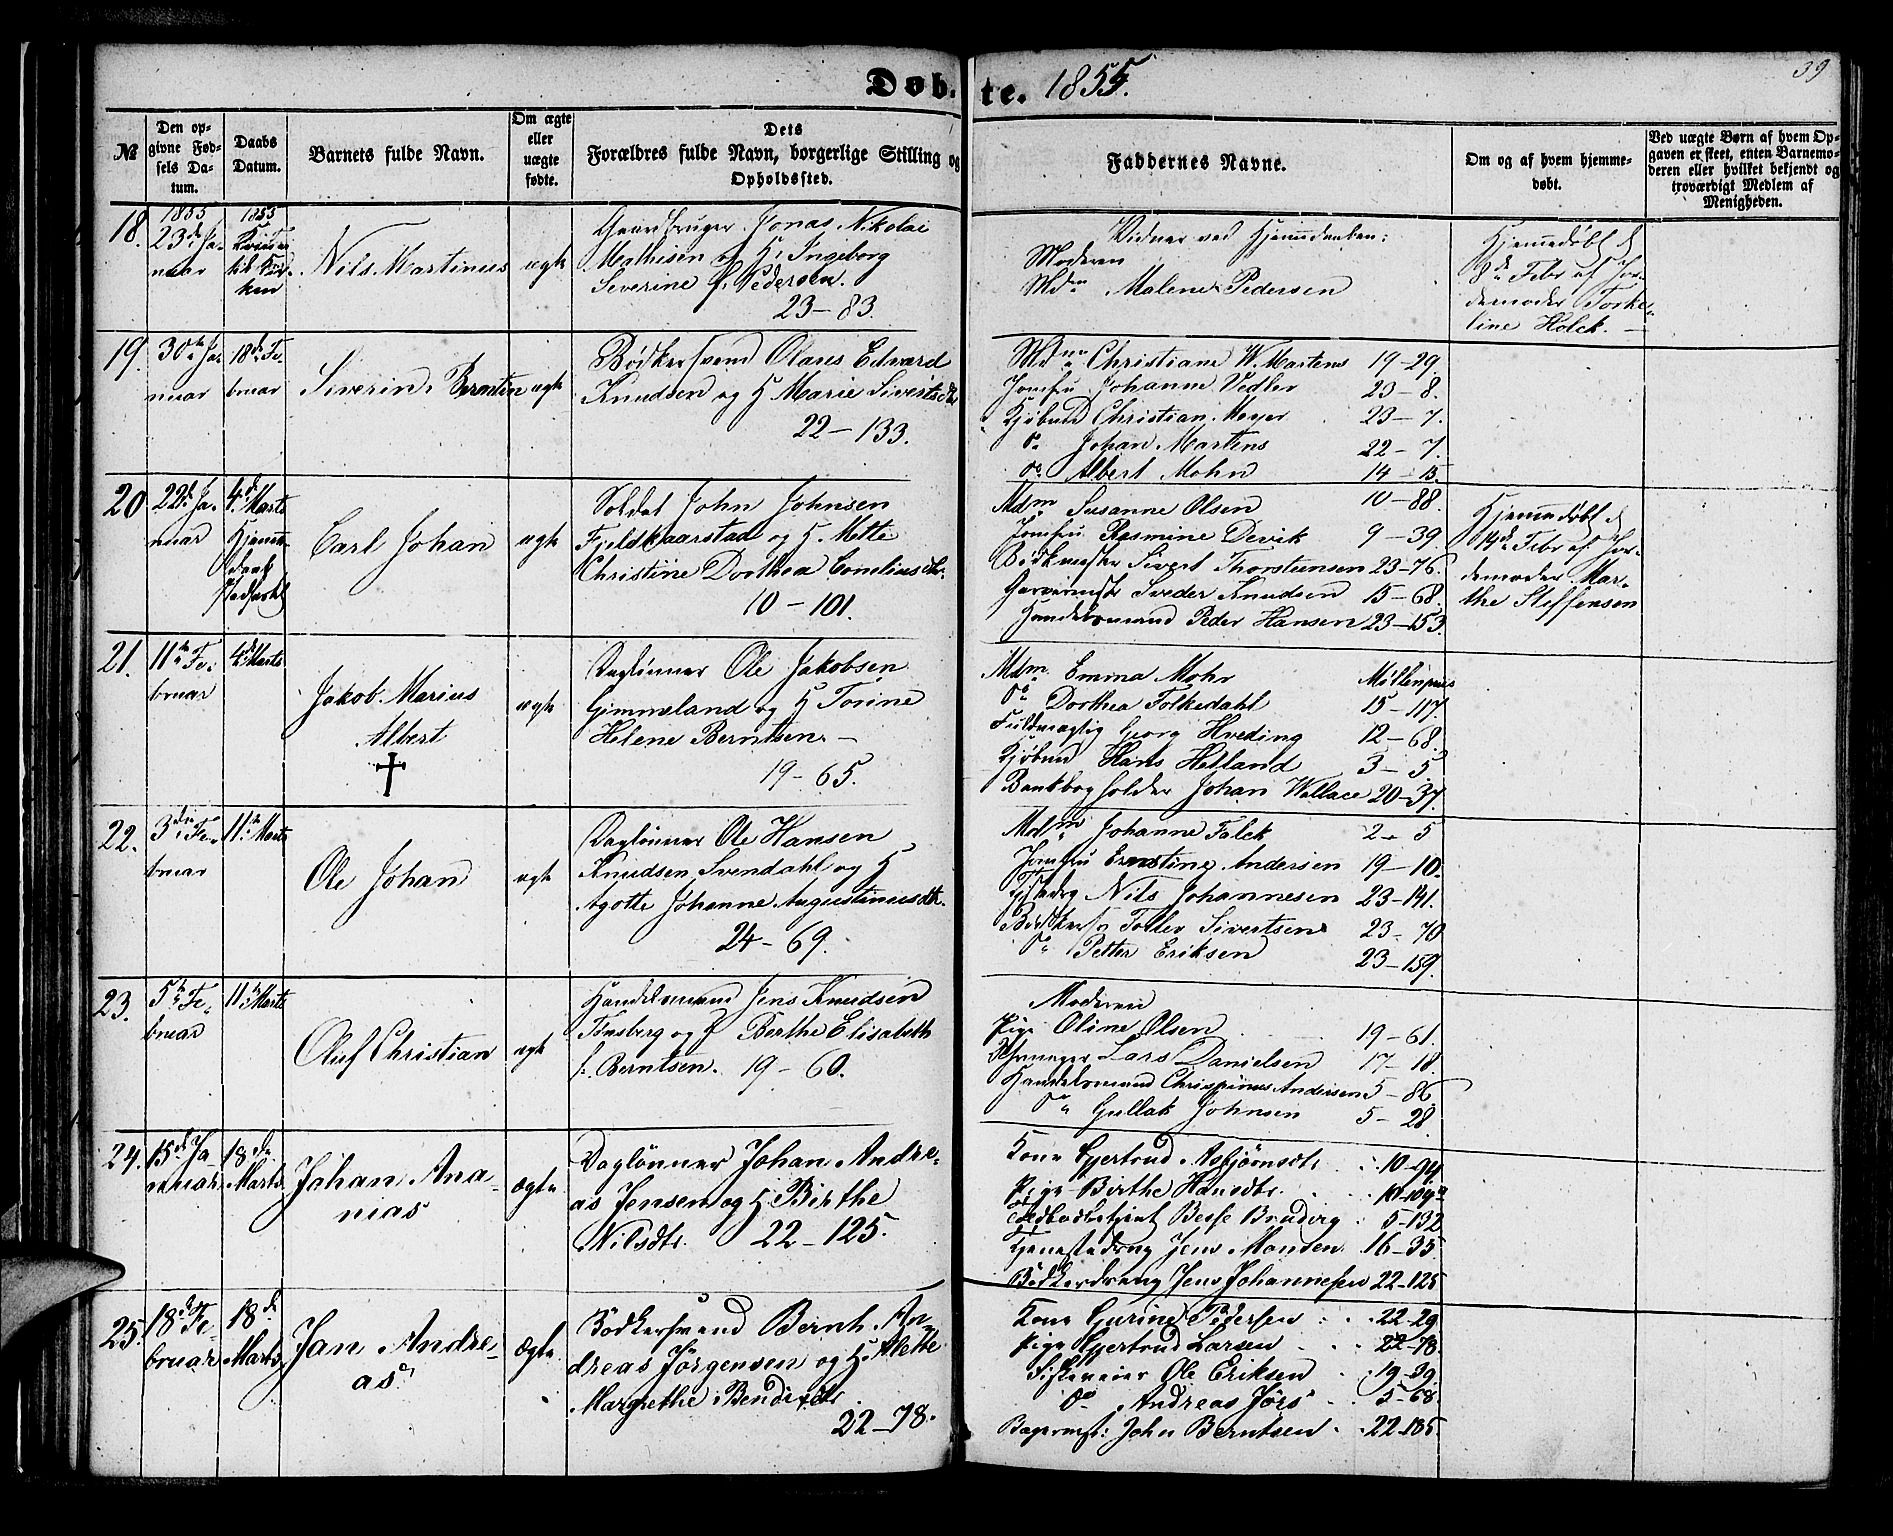 Døb-te. 1855.
39
№
Den opgivne Fødsels Datum.
Daabs Datum.
Barnets fulde Navn.
Om ægte eller uægte fødte.
Dets Forældres fulde Navn, borgerlige Stilling og Opholdssted.
Faddernes Navne.
Om og af hvem hjemmedøbt.
Ved uægte Børn af hvem Opgaven er skeet, enten Barnemoderen eller hvilket bekjendt og troværdigt Medlem af Menigheden.
18.
1855
23de Januar
1855
Nils Martinus
ægte
Gaardbruger Jonas Nikolai
Mathisen og H. Ingeborg
Severine f. Pedersen.
23-83.
Vidner ved Hjemmedaaben:
Moderen
Mdm Malene Pedersen
Hjemmedøbt d
8de Febr af Jor-
demoder Torke-
line Holck.
19.
30te Ja-
nuar
18de Fe-
bruar
Siverin Berntin
ægte
Bødkersvend Olaves Edvard
Knudsen og H Marie Sivertsdtr
22-133.
Mdm Christiane W. Martens 19-29.
Jomfru Johanne Vedler 23-8.
Kjøbmd Christian Meyer 23-7.
do Johan Martens 22-7.
do Albert Mohn 14-15.
20
22de Ja-
nuar
4de Marts
Hjemme-
daab
stadfæstet
Carl Johan
ægte
Soldat John Johnsen
Fjeldskaarstad og H. Mette
Christine Dorthea Corneliusdtr.
10-101.
Mdm Susanne Olsen 10-88.
Jomfru Rasmine Devik 9-39.
Bødkmester Sivert Thorstensen 23-76.
Garvermstr Sveder Knudsen 15-68.
Handelsmand Peder Hansen 23-153.
Hjemmedøbt d
14de Febr af Jor-
demoder Mar-
the Steffensen
21.
11te Fe-
bruar
4de Marts
Jakob Marius
Albert
✝
ægte
Daglønner Ole Jakobsen
Gimmeland og H Torine
Helene Berntsen.
19-65.
Mdm Emma Mohr Møllenpriis
do Dorthea Folkedahl 15-117.
Fuldmægtig Georg Hveding 12-68.
Kjøbmd Hans Helland 3-5.
Bankbogholder Johan Wallace 20-37.
22.
3die Fe-
bruar
11te Marts
Ole Johan
ægte
Daglønner Ole Hansen
Knudsen Svendahl og H
Agotte Johanne Augustinusdtr.
24-69.
Mdm Johanne Falck 2-5
Jomfru Ernstine Andersen 19-10.
Nils Johannesen 23-141.
Bødkersv Tollev Sivertsen 23-70
do Petter Eriksen 23-159.
23.
5te Fe-
bruar
11te Marts
Oluf Christian
ægte
Handelsmand Jens Knudsen
Tønsberg og H Berthe Elisabeth
f. Berntsen. 19-60.
Moderen
Pige Oline Olsen 19-61.
Lars Danielsen 17-18.
Handelsmand Chrispinus Andersen 5-86.
do Gullak Johnsen 5-28.
24.
15de Ja-
nuar
18de
Marts
Johan Ana-
nias
ægte
Daglønner Johan Andre-
as Jensen og H. Birthe
Nilsdtr. 22-125.
Kone Gjertrud Asbjørnsdtr 10-94.
Pige Birthe Hansdtr.
5-132
Tjenestedreng Jens Monsen 16-35
Bødkerdreng Jens Johannesen 22-125
25.
18de Fe-
bruar
18de
Marts
Jan Andre-
as
Ægte
Bødkersvend Bernh. An-
dreas Jörgensen og H. Alethe
Margrethe Bendixdtr
22-78.
Kone Gurine Pedersen 22-29
Pige Gjertrud Larsen 22-78.
Ole Eriksen 19-39.
do Andreas Jörs 5-68.
Bagermst: John Berntsen 22-185.